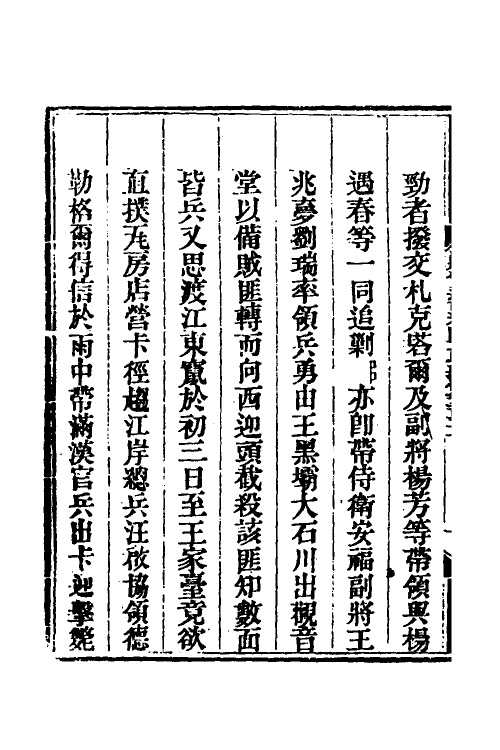 勁者撥交札克塔爾及副將楊芳等帶領與楊
遇春等一同追剿 亦卽帶侍衛安福副將王
兆夢劉瑞率領兵勇由王黑壩大石川出觀音
堂以備賊匪轉而向西迎頭截殺該匪知數面
皆兵又思渡江東竄於初三日至王家臺竟欲
直撲瓦房店營卡徑趨江岸總兵汪啟協領德
勒格爾得信於雨中帶滿漢官兵出卡迎擊斃